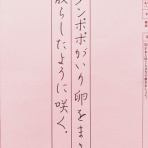 ンポポがいり卵をま
散らしたように咲く。